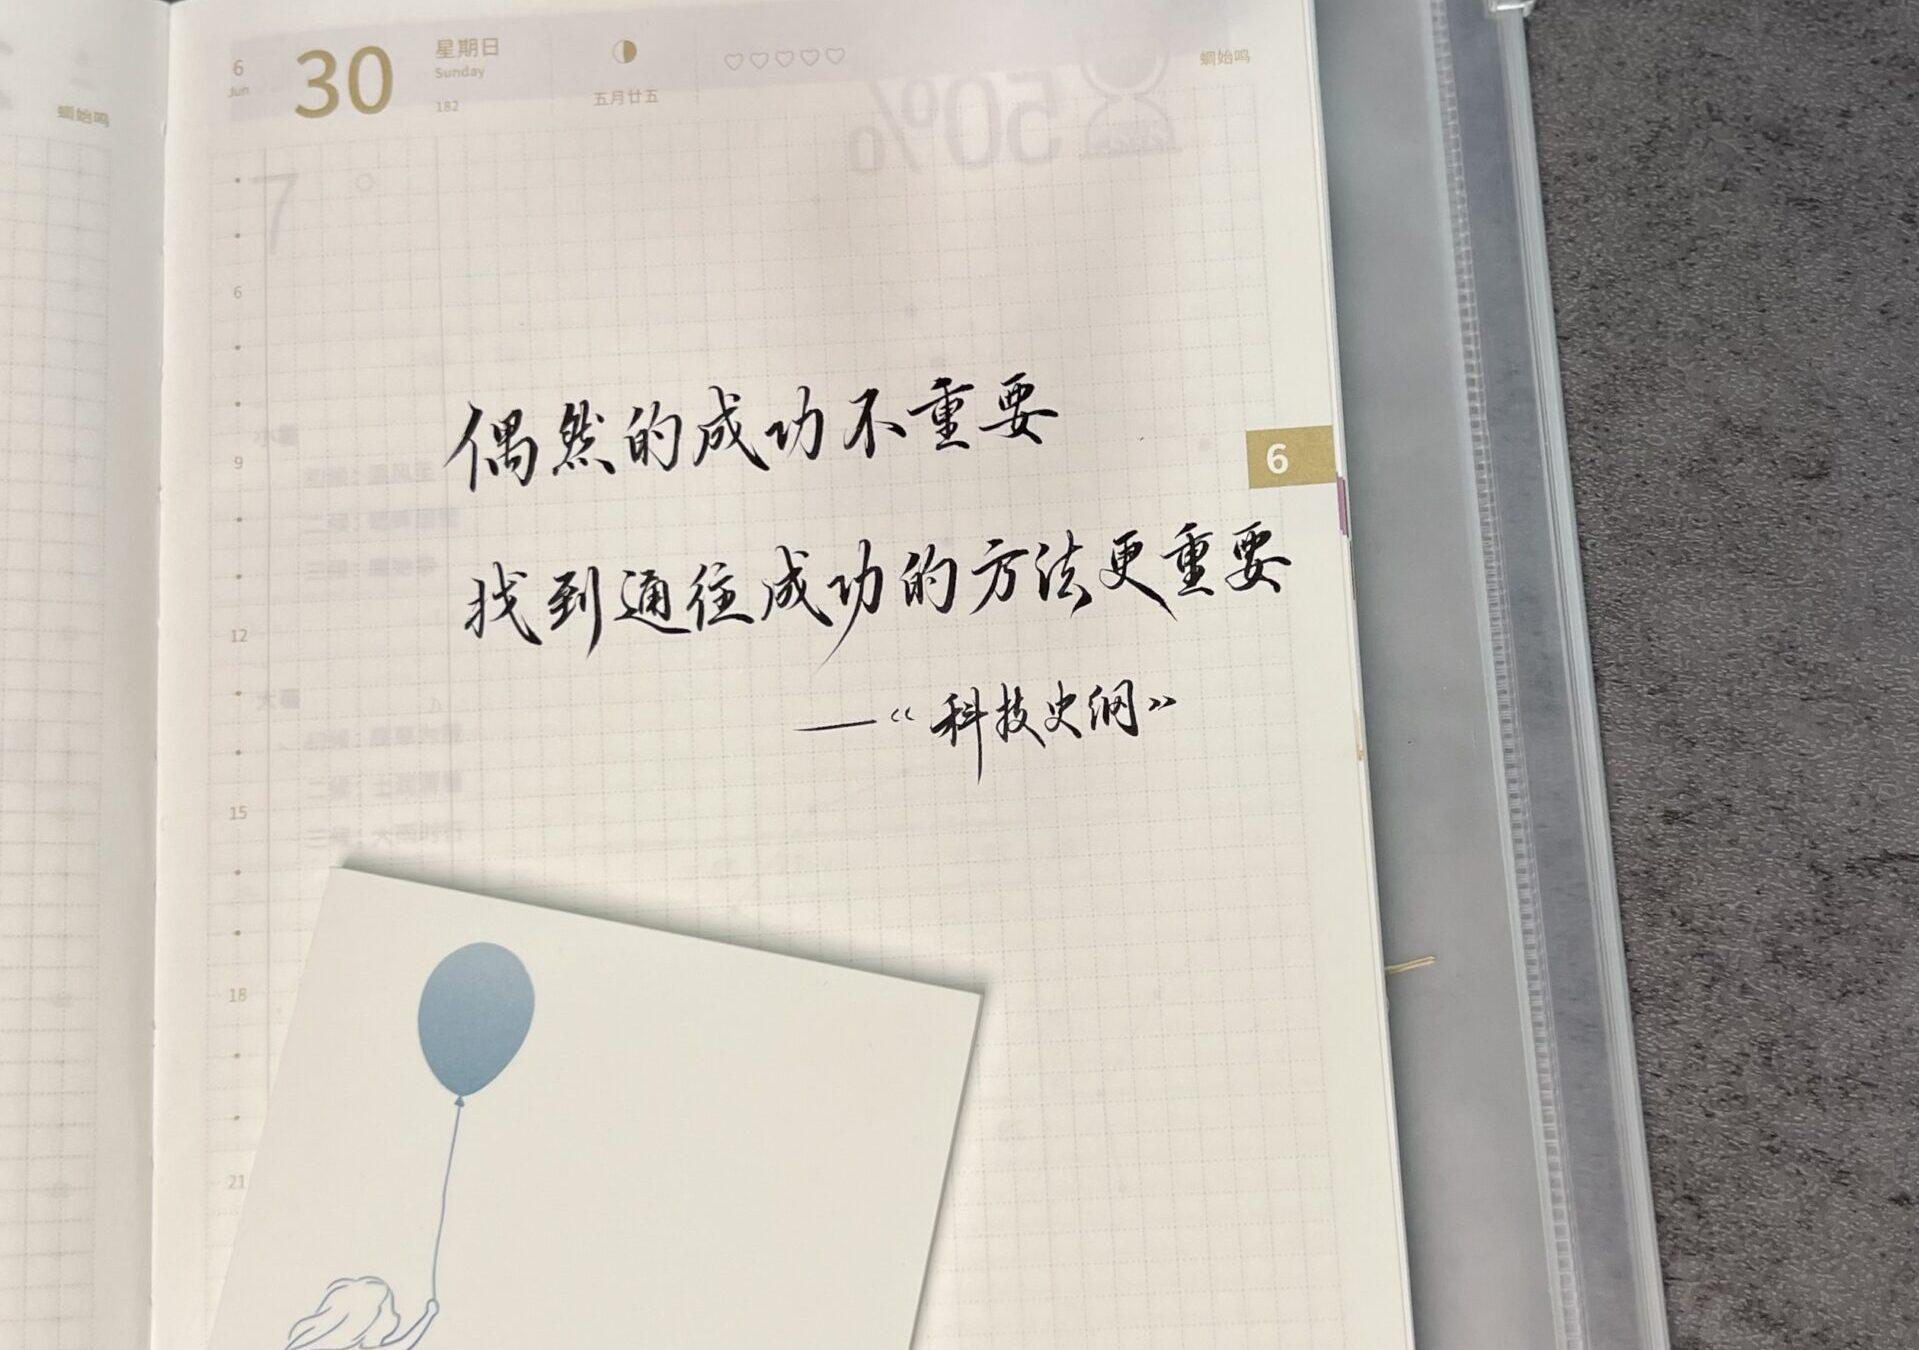 6
Jun
30
星期日
Sunday
182
五月廿五
蜩始鸣
蜩始鸣
50%
7
6
偶然的成功不重要
9
6
找到通往成功的方法更重要
12
——《科技史纲》
15
18
21